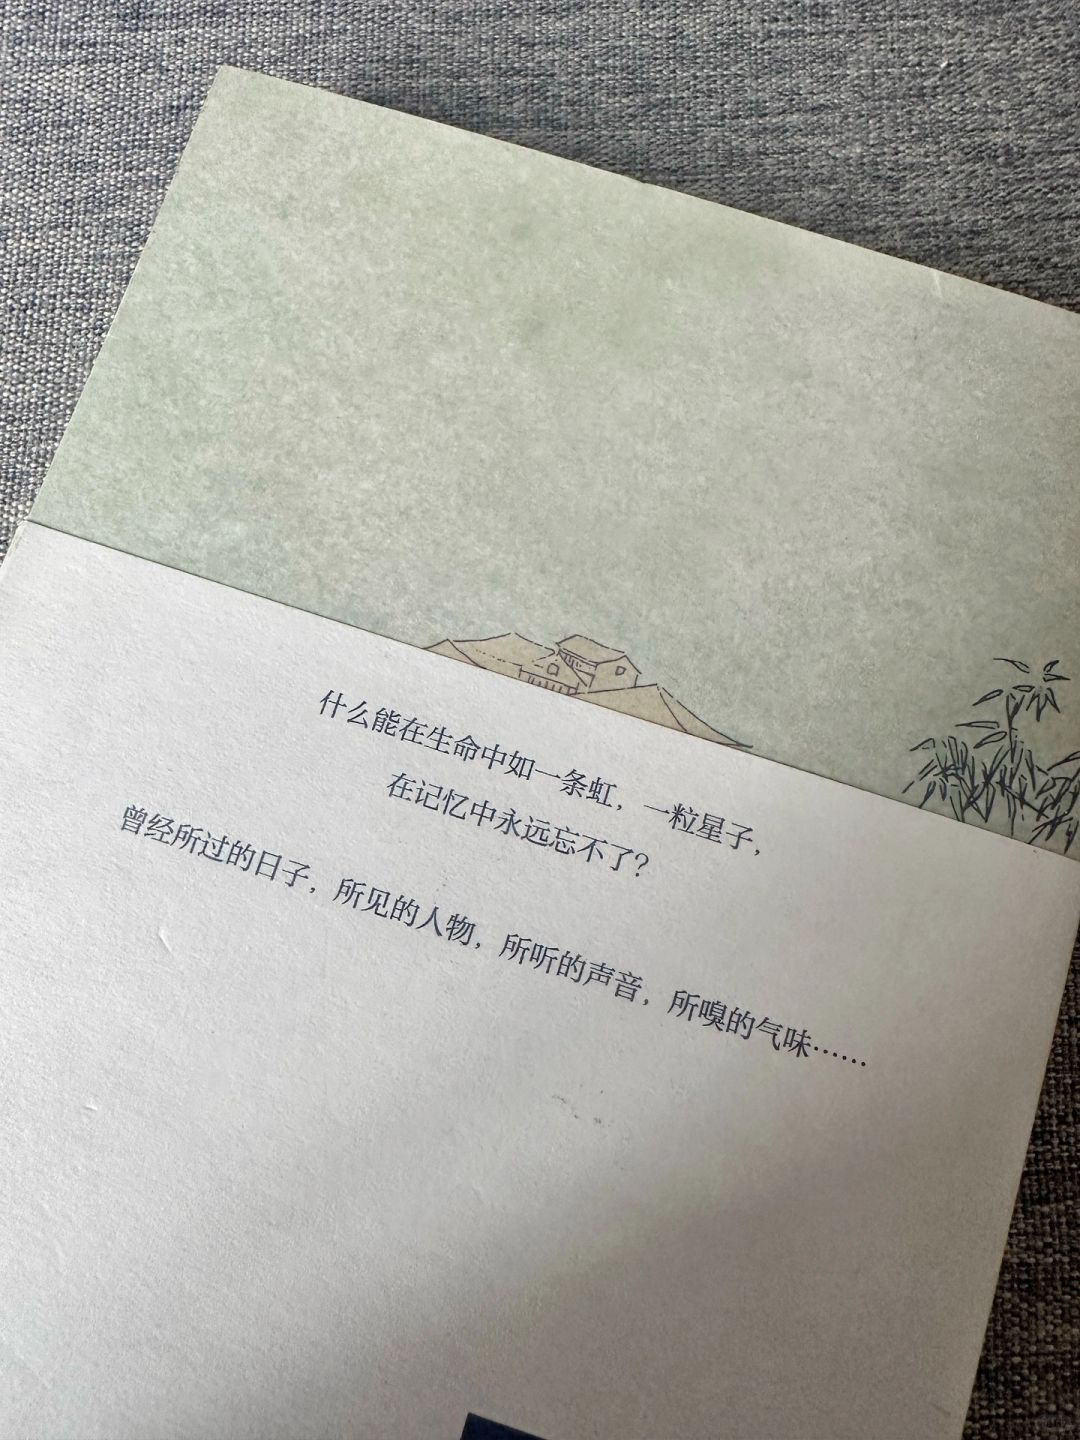 什么能在生命中如一条虹，一粒星子，
在记忆中永远忘不了？
曾经所过的日子，所见的人物，所听的声音，所嗅的气味……